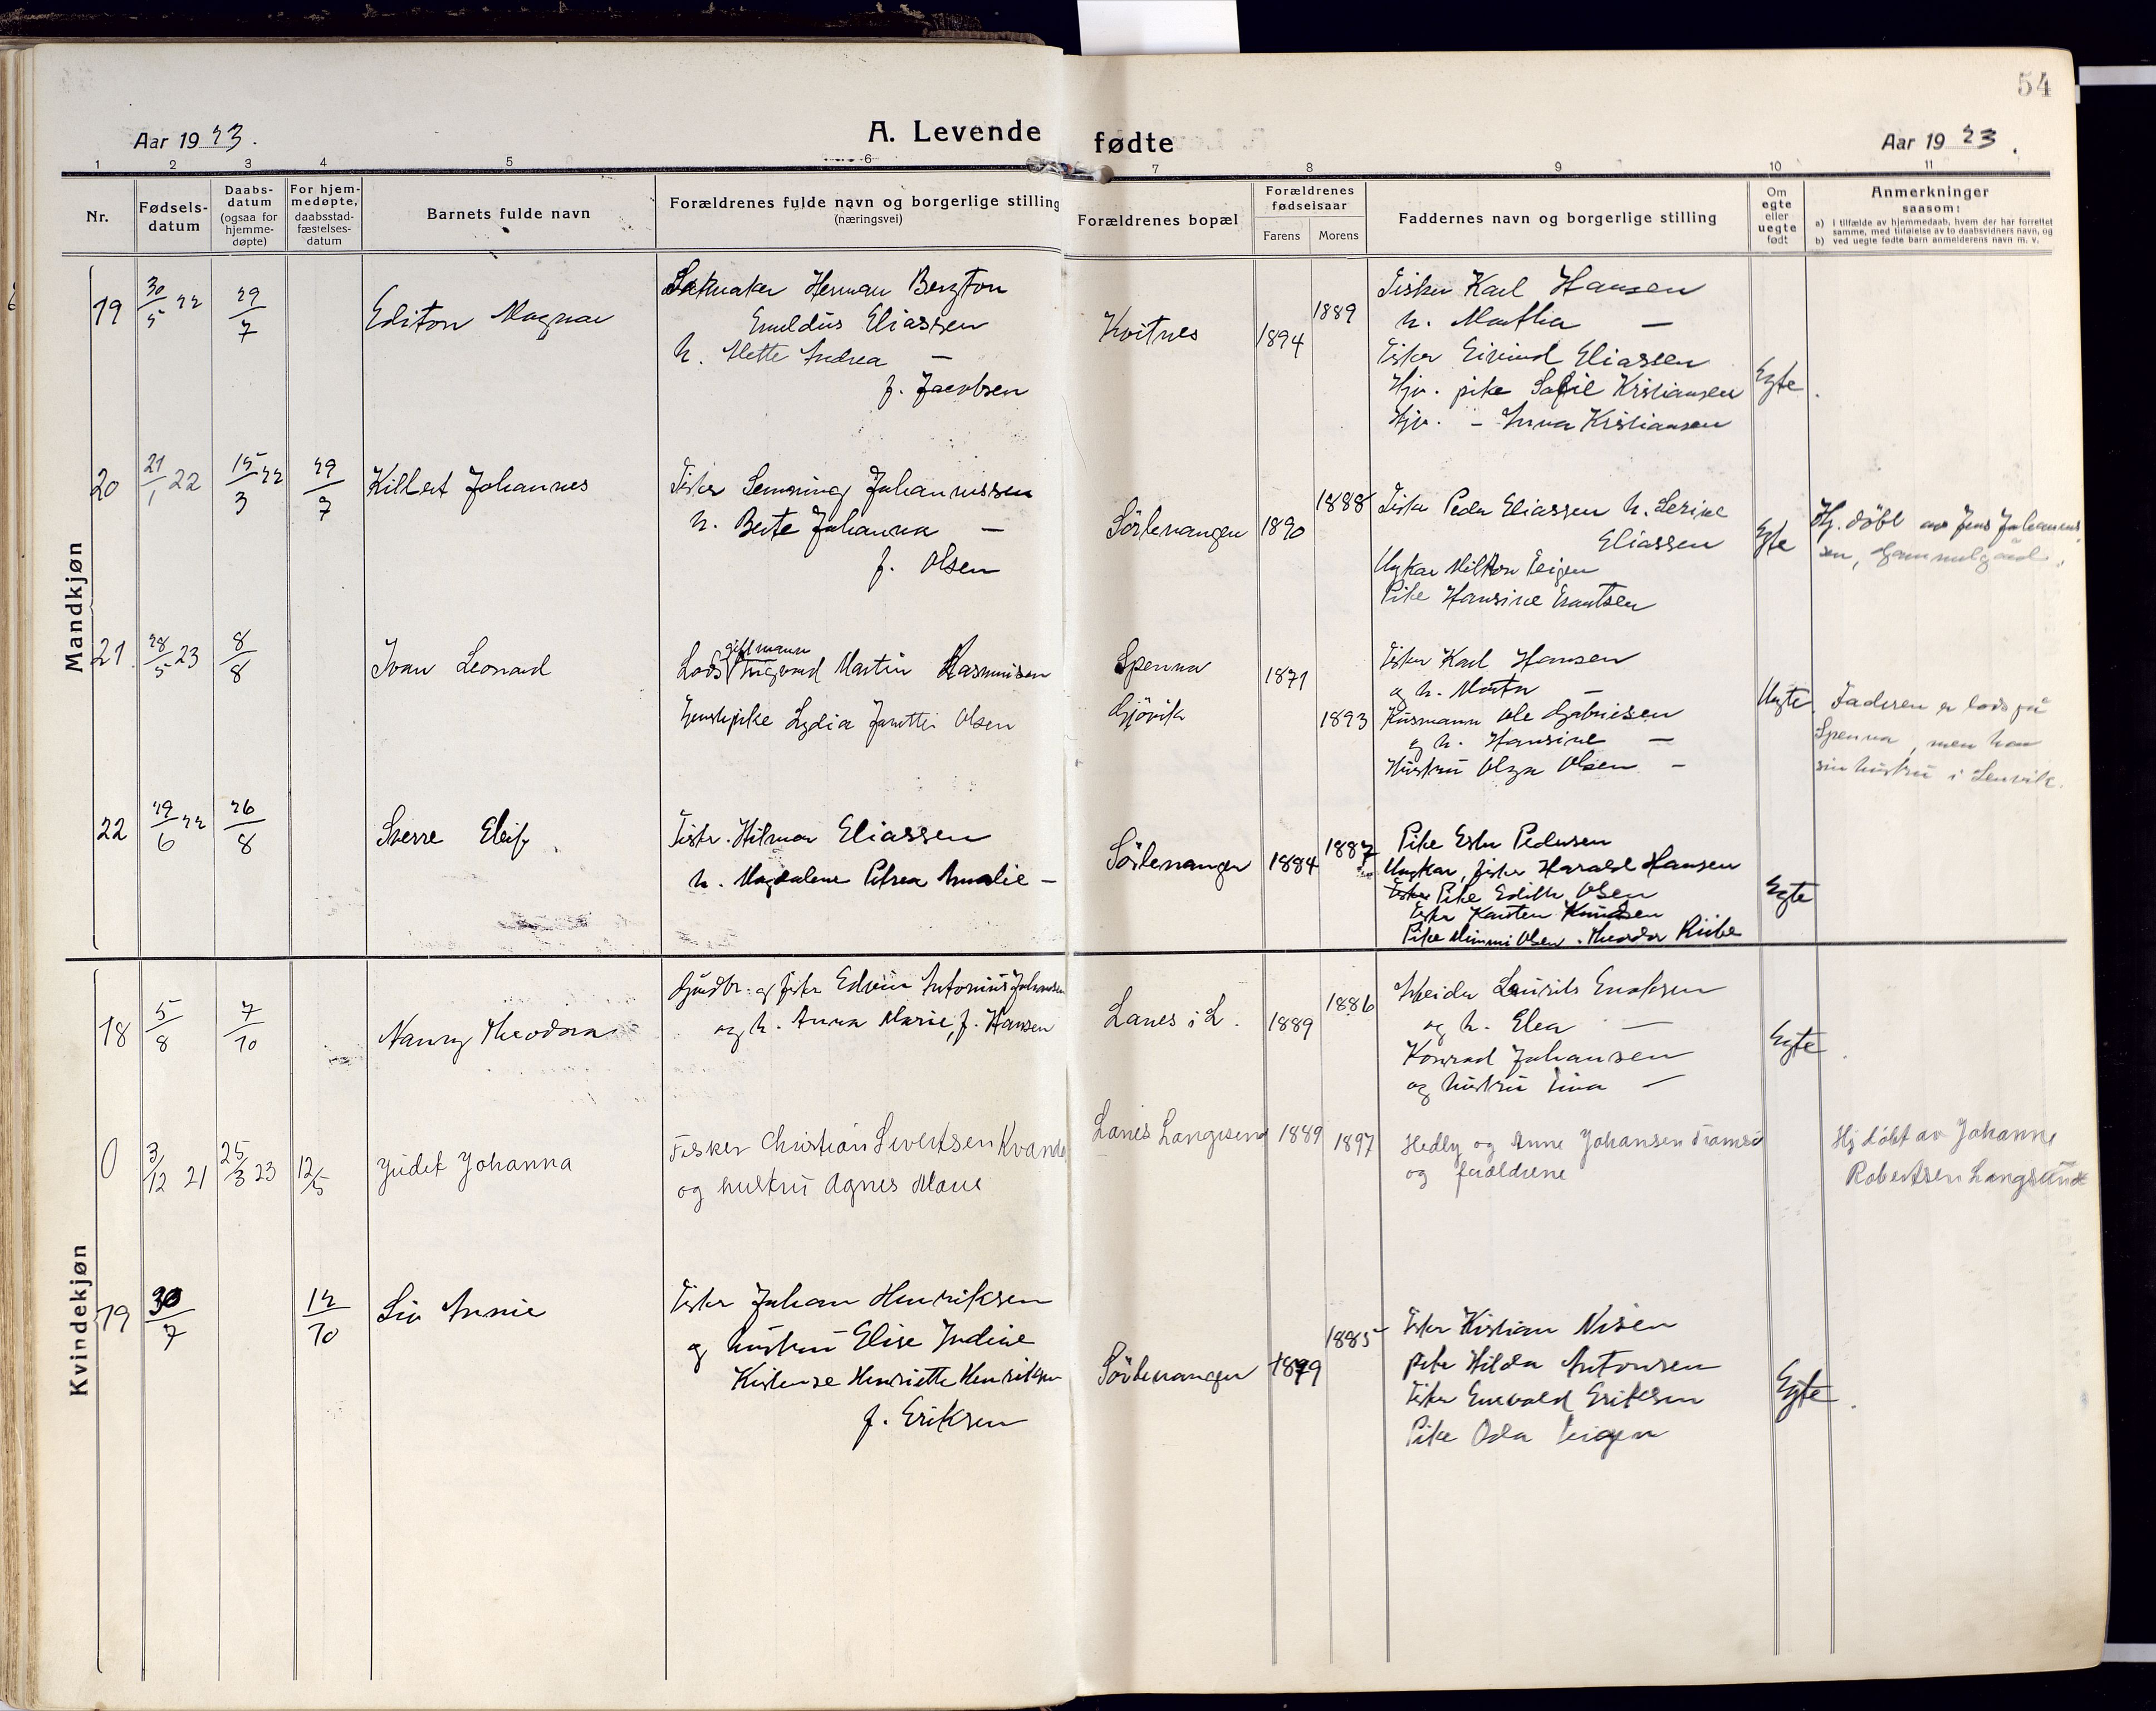 54
Aar 1923.
A. Levende fødte
Aar 1923.
1 2 3 4 5 6 7 8 9 10 11
Nr.
Fødsels-
datum
Daabs-
datum
(ogsaa for
hjemme-
døpte)
For hjem-
medøpte,
daabsstad-
fæstelses-
datum
Barnets fulde navn
Forældrenes fulde navn og borgerlige stilling
(næringsvei)
Forældrenes bopæl
Forældrenes
fødselsaar
Farens Morens
Faddernes navn og borgerlige stilling
Om
egte
eller
uegte
født
Anmerkninger
saasom:
a) i tilfælde av hjemmedaab, hvem der har forrettet
samme, med tilføielse av to daabsvidners navn, og
b) ved uegte fødte barn anmelderens navn m. v.
Mandkjøn
19
30/5 22
29/7
Editon Magnar
Herman Bergton
Emeldus Eliassen
h. Mette Andrea —
f. Jacobsen
Kvitnes
1894
1889
Fisker Karl Hansen
h. Martha —
Fisker Eivind Eliassen
Hjv. pike Kristiansen
Hjv. – Anna Kristiansen
Egte
20
21/1 22
15/3 22
29/7
Johannes
Fisker Johannessen
h. Berte Johanna —
f. Olsen
Sörlenangen
1890
1888
Fisker Peder Eliassen h. Serine
Eliassen
Ungkar Milton Teigen
Pike Hansine
Egte
Hj. döbt av Jens Johannes-
sen, Gammelgård.
21.
28/5 23
8/8
Ivar Leonard
gift mann
Lods Ingvard Martin Rasmussen
Lydia Olsen
Spenna
Gjövik
1871
1893
Fisker Karl Hansen
og h. Marta —
Husmann Ole Gabrielsen
og h. Hansine —
Hustru Olga Olsen –
Uegte
Faderen er lods på
Spenna, men har
sin hustru i Lenvik.
22
29/6 22
26/8
Sverre Eleif
Fisker Hilmar Eliassen
h. Magdalene Petrea Amalie –
Sörlenangen
1884
1887
Pike Ester Pedersen
Ungkar, fisker Harald Hansen
Fisker Pike Edith Olsen
Fisker Karsten Knudsen
Pike Mimmi Olsen. Theodor Riibe
Egte
Kvindekjøn
18
5/8
7/10
Nanny Theodora
Gaardbr. og fisker Edvin Antonius Johansen
og h. Anna Marie, f. Hansen
Lanes i L.
1889
1886
Arbeider Laurits
og h. Elea —
Konrad Johansen
og hustru Lina –
Egte
0
3/12 21
25/3 23
12/5
Judit Johanna
Fisker Christian Sivertsen Kvande
og hustru Agnes Marie
Lanes Langesund
1889
1897
Hedly og Anne Johansen Tromsö
og foraldrene
Hj döbt av Johanne
Robertsen Langsund
19
30/7
14/10
Liv Annie
Fisker Johan Henriksen
og hustru Elise Indine
Kirstense Henriette Henriksen
f. Eriksen
Sörlenangen
1879
1885
Fisker Kristian Nisen
pike Hilda Antonsen
Fisker Enevald Eriksen
Pike Oda Teigen
Egte.